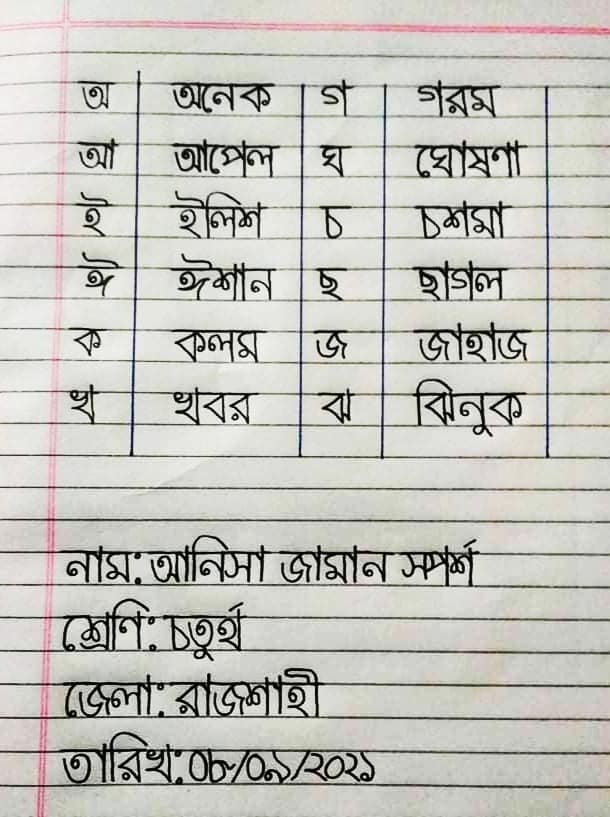 অ অনেক গ গরম
আ আপেল ঘ ঘোষণা
ই ইলিশ চ চশমা
ঈ ঈশান ছ ছাগল
ক কলম জ জাহাজ
খ খবর ঝ ঝিনুক
নাম: আনিসা জামান স্পর্শ
শ্রেণি: চতুর্থ
জেলা: রাজশাহী
তারিখ: ০৮/০৯/২০২১